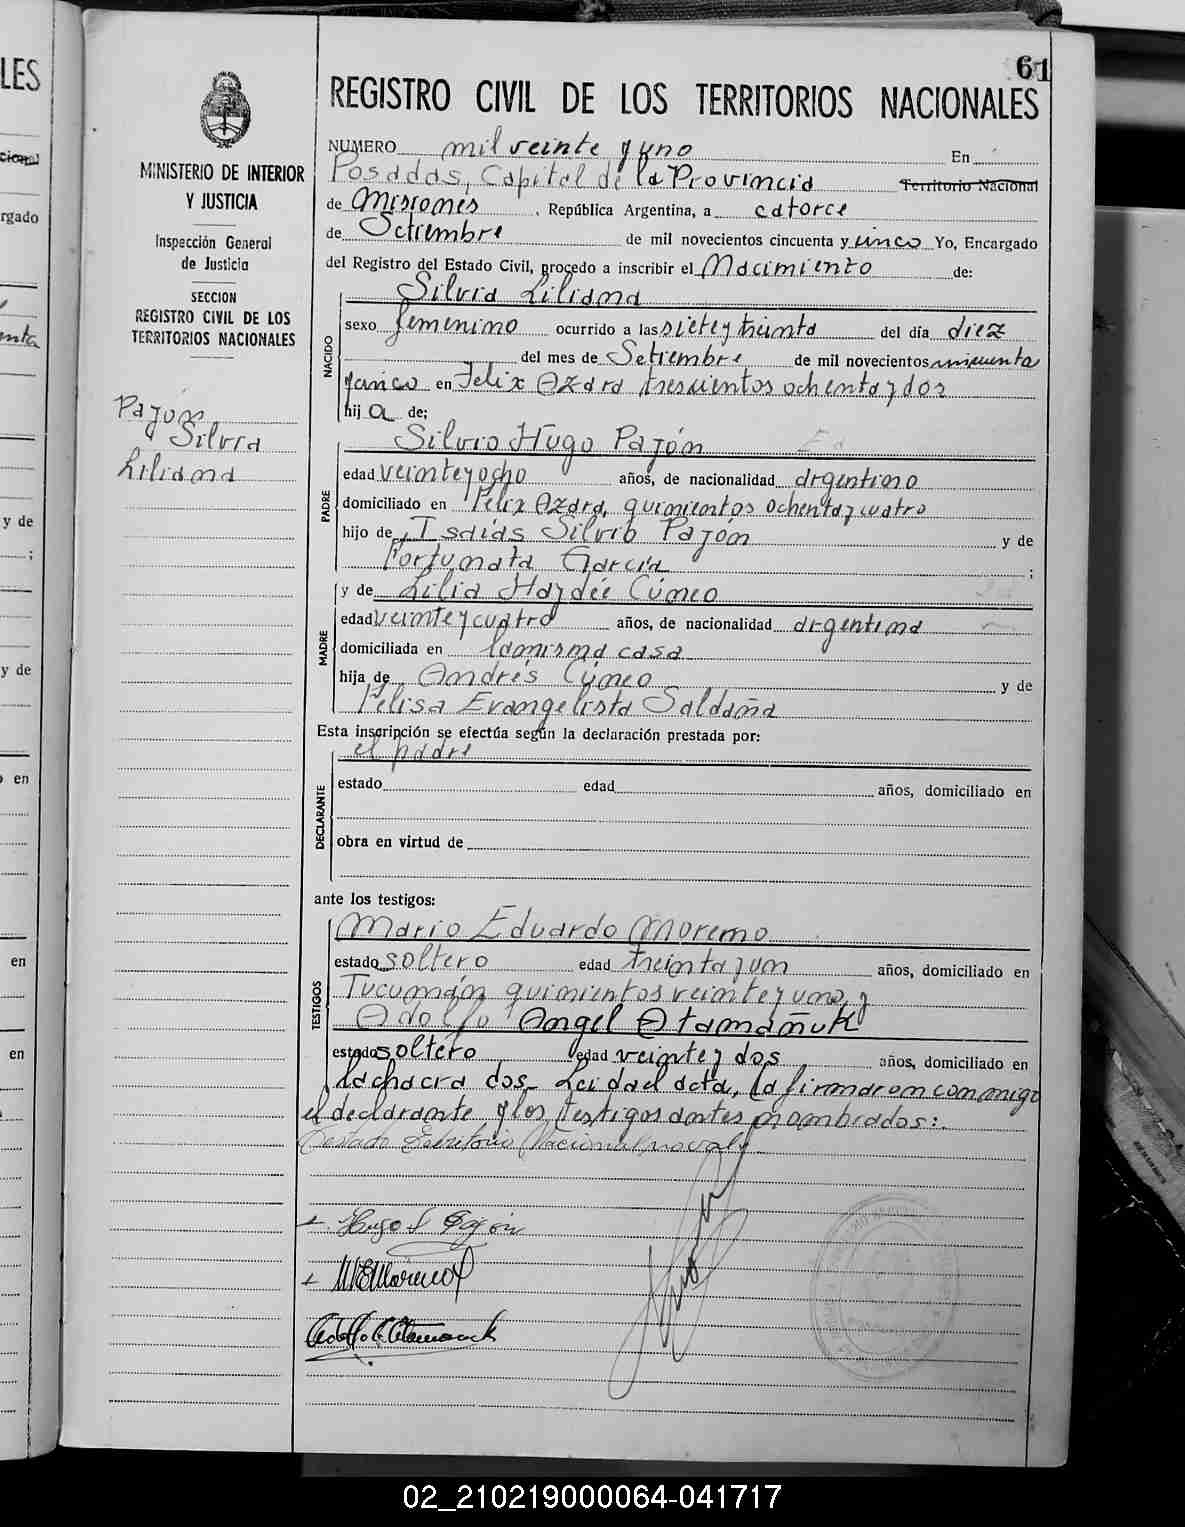 61
REGISTRO CIVIL DE LOS TERRITORIOS NACIONALES
MINISTERIO DE INTERIOR
Y JUSTICIA
Inspección General
de Justicia
SECCION
REGISTRO CIVIL DE LOS
TERRITORIOS NACIONALES
Pajón
Silvia
Liliana
NUMERO mil veinte y uno En
Posadas, Capital de la Provincia Territorio Nacional
de Misiones, República Argentina, a catorce
de Setiembre de mil novecientos cincuenta y cinco Yo, Encargado
del Registro del Estado Civil, procedo a inscribir el Nacimiento de:
NACIDO
Silvia Liliana
sexo femenino ocurrido a las siete y treinta del día diez
del mes de Setiembre de mil novecientos cincuenta
y cinco en Felix Azara trescientos ochenta y dos
hija de;
PADRE
Silvio Hugo Pajón
edad veinte y ocho años, de nacionalidad argentino
domiciliado en Felix Azara, quinientos ochenta y cuatro
hijo de Isaías Silvio Pajón y de
Fortunata García ;
y de Lilia Haydée Cúneo
MADRE
edad veinte y cuatro años, de nacionalidad argentina
domiciliada en la misma casa
hija de Andrés Cúneo y de
Felisa Evangelista Saldaña
Esta inscripción se efectúa según la declaración prestada por:
el padre
DECLARANTE
estado edad años, domiciliado en
obra en virtud de
ante los testigos:
TESTIGOS
Mario Eduardo Moreno
estado soltero edad treinta y un años, domiciliado en
Tucumán quinientos veinte y uno, y
Adolfo Angel Atamañuk
estado soltero edad veinte y dos años, domiciliado en
la chacra dos. Leida el acta, la firmaron conmigo
el declarante y los testigos antes nombrados:
Testado Territorio Nacional, no vale
Hugo S Pajón
M E Moreno
LES
rgado
y de
;
y de
en
en
en
02_210219000064-041717